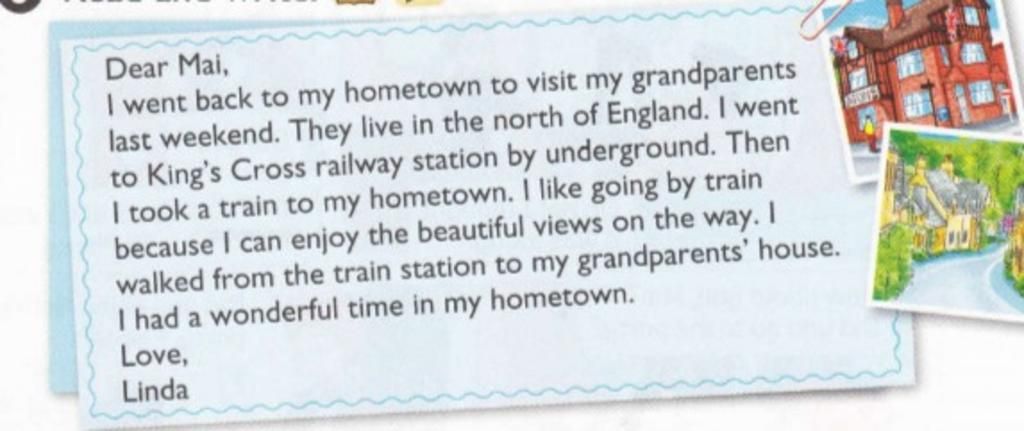 Dear Mai,
I went back to my hometown to visit my grandparents
last weekend. They live in the north of England. I went
to King's Cross railway station by underground. Then
I took a train to my hometown. I like going by train
because I can enjoy the beautiful views on the way. I
walked from the train station to my grandparents' house.
I had a wonderful time in my hometown.
Love,
Linda